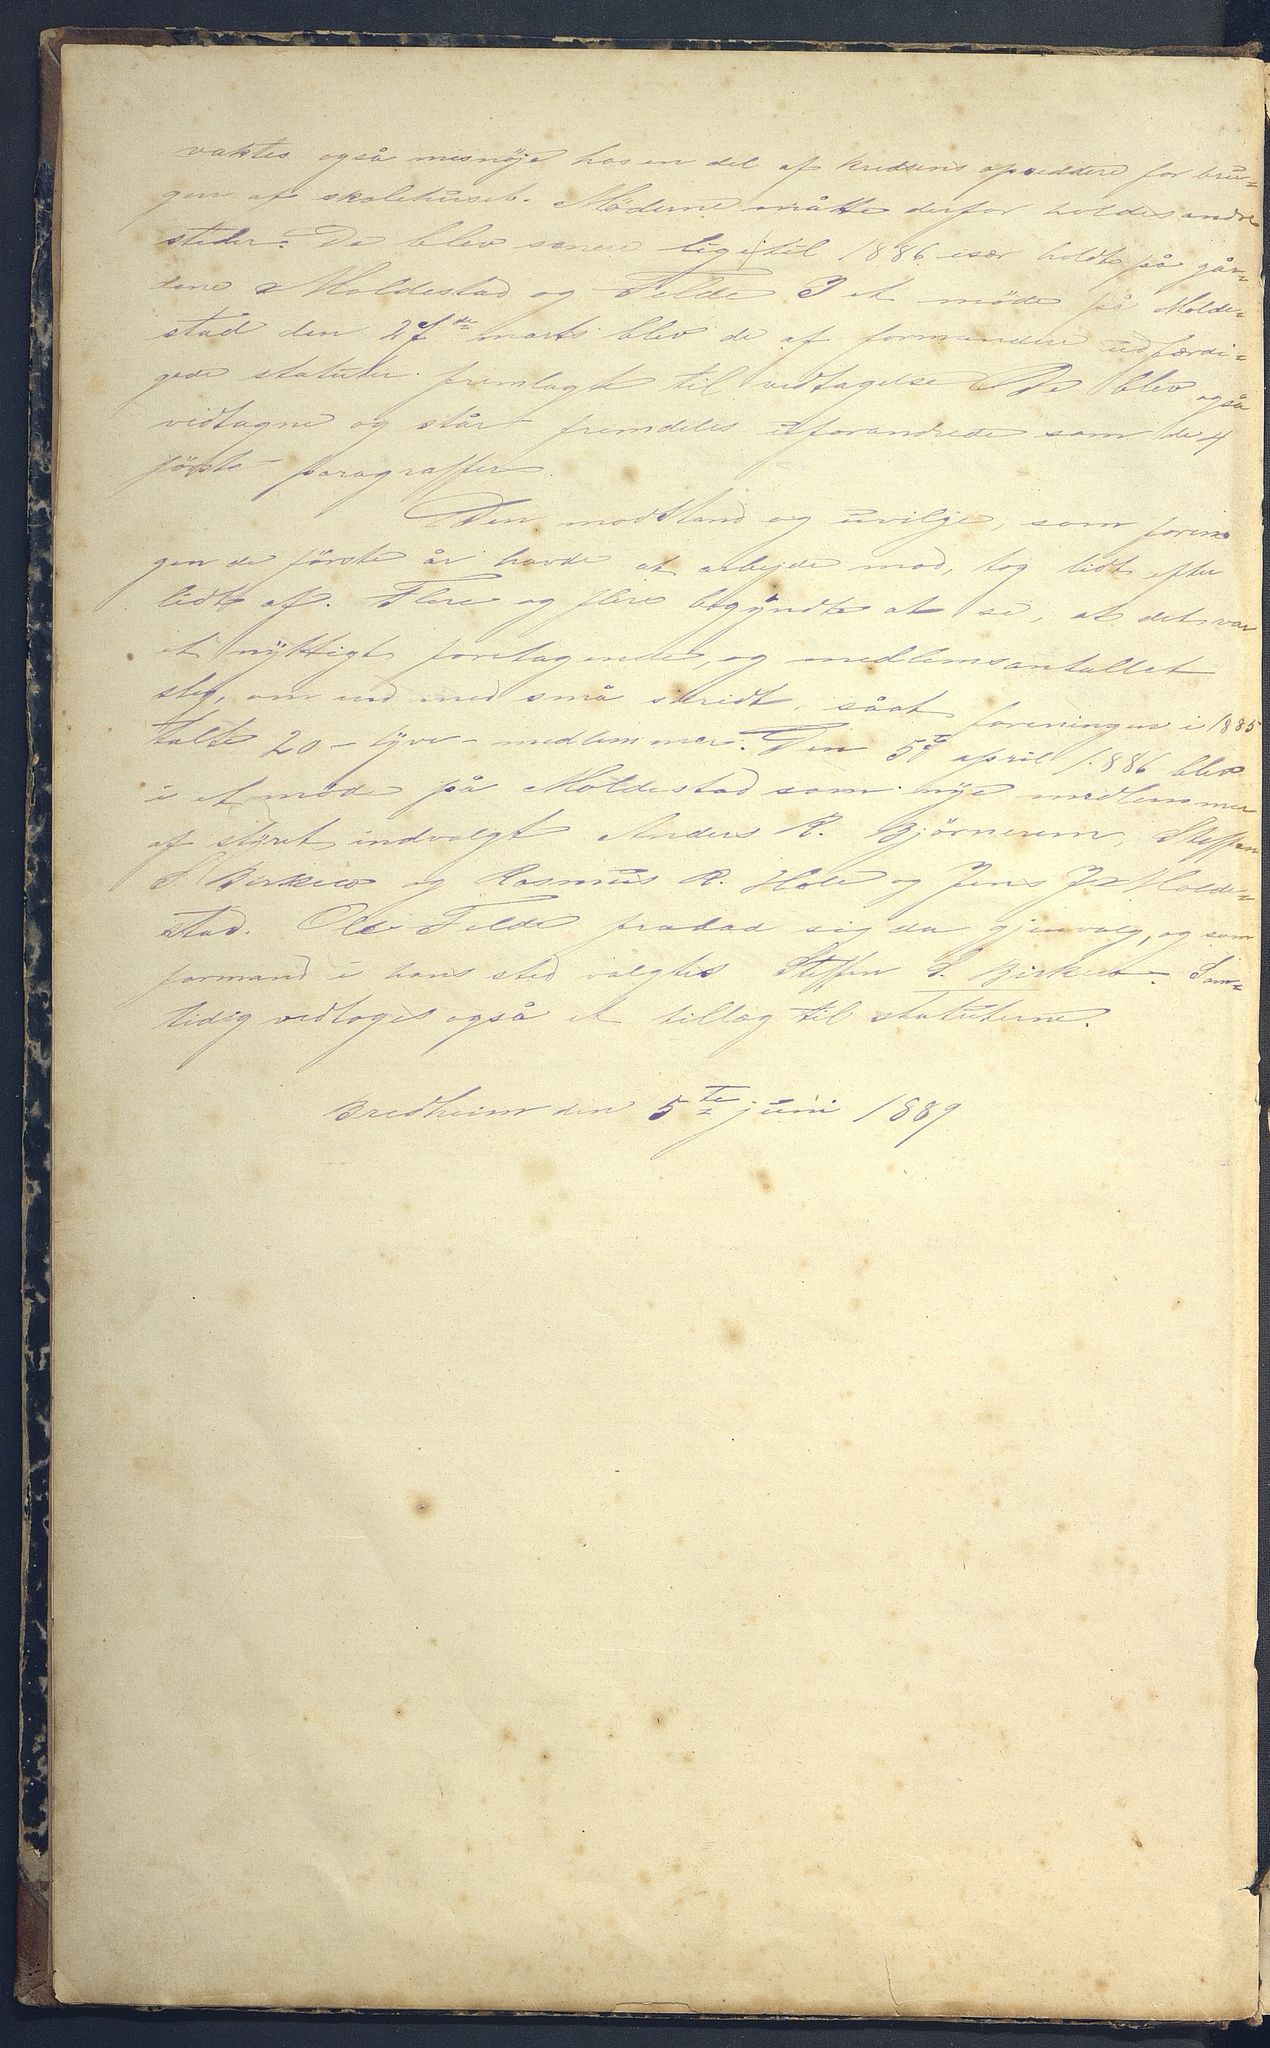 vaktes også misnöje hos en del af kredsens opsiddere for bru-
gen af skolehuset. Möderne måtte derfor holdes andre
steder. De blev senere lige til 1886 især holdt på går-
dene Moldestad og Felde I et möde på Molde-
stad den 27de marts blev de af formanden udfærdi-
gede statuter fremlagte til vedtagelse De blev også
vedtagne og står fremdeles uforandrede som de 4
förste paragraffer.
Den modstand og uvilje, som forenin
gen de förste år havde at arbejde mod, tog lidt efter
lidt af. Flere og flere begyndte at se, at det var
et nyttigt foretagende, og medlemsantallet
steg, om end med små skridt, såat foreningen i 1885
talte 20 - tyve - medlemmer. Den 5te april 1886 blev
i et möde på Moldestad som nye medlemmer
af styret indvalgt Anders R. Bjørnerem, Steffen
S. Birkelo og Rasmus R. Hole og Jens J. Molde-
stad. Ole Felde frabad sig da gjenvalg, og som
formand i hans sted valgtes Steffen S. Birkelo. Sam-
tidig vedtoges også et tillæg til statuterne.
Bredheim den 5te juni 1889